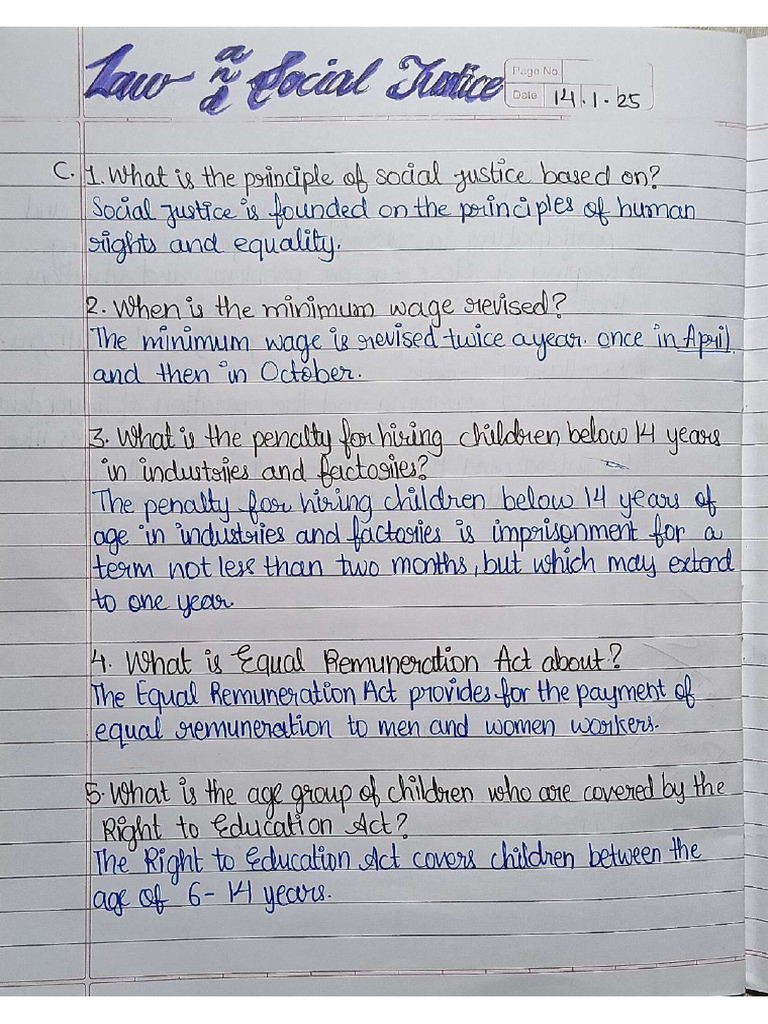 Law and Social Justice
Page No.
Date 14.1.25
C. 1. What is the principle of social justice based on?
Social justice is founded on the principles of human
rights and equality.
2. When is the minimum wage revised?
The minimum wage is revised twice a year. once in April
and then in October.
3. What is the penalty for hiring children below 14 years
in industries and factories?
The penalty for hiring children below 14 years of
age in industries and factories is imprisonment for a
term not less than two months, but which may extend
to one year.
4. What is Equal Remuneration Act about?
The Equal Remuneration Act provides for the payment of
equal remuneration to men and women workers.
5. What is the age group of children who are covered by the
Right to Education Act?
The Right to Education Act covers children between the
age of 6-14 years.